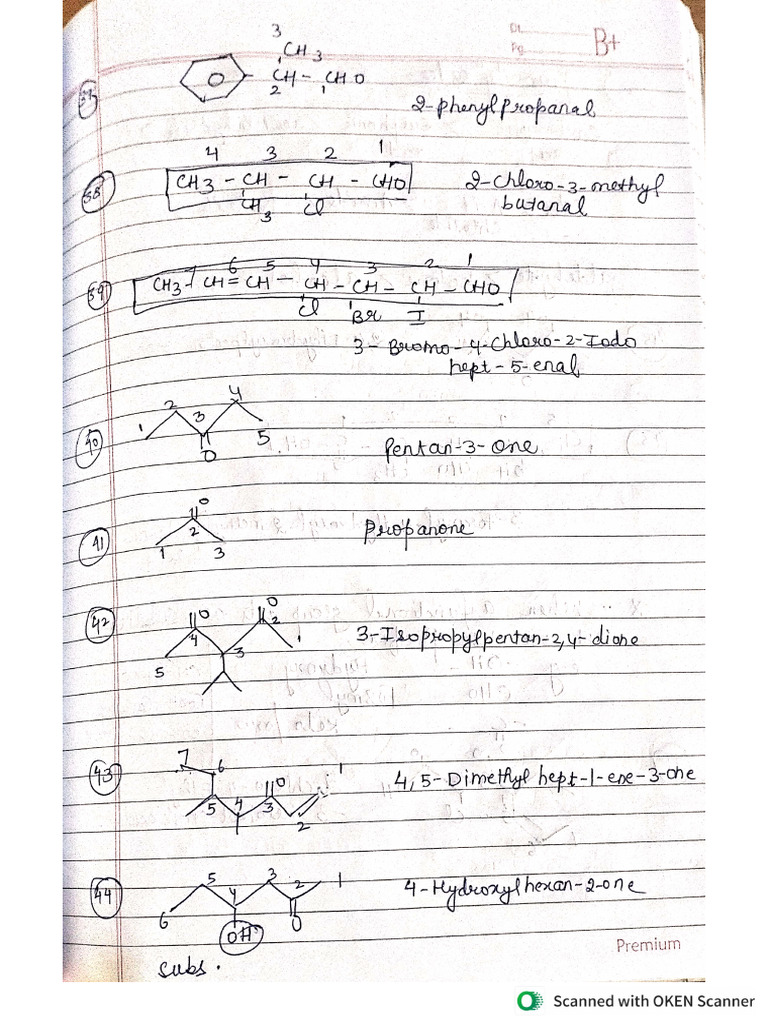 Dt.
Pg.
B+
37
3
CH3
CH- CHO
2
2-phenylpropanal
38
4 3 2 1
CH3 - CH - CH - CHO
CH3 Cl
2-Chloro-3-methyl
butanal
39
7 6 5 4 3 2 1
CH3 - CH = CH - CH - CH - CH - CHO
Cl Br I
3-Bromo-4-Chloro-2-Iodo
hept-5-enal
40
1 2 3 4 5
O
Pentan-3-one
41
O
1 2 3
Propanone
42
O O
5 4 3 2 1
3-Isopropylpentan-2,4-dione
43
7 6 5 4 3 2 1
O
4,5-Dimethyl hept-1-ene-3-one
44
6 5 4 3 2 1
OH O
4-Hydroxylhexan-2-one
subs.
Premium
Scanned with OKEN Scanner